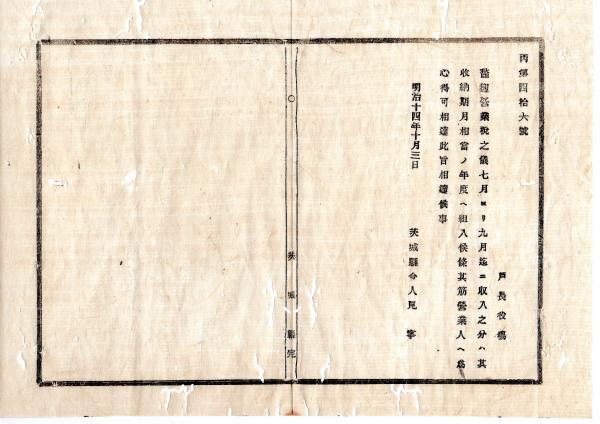 丙第四拾六號
戸長役場
營業稅之儀七月ヨリ九月迄ニ收入之分ハ其
收納期月相當ノ年度ヘ組入候條其筋營業人ヘ爲
心得可相達此旨相達候事
明治十四年十月三日
茨城縣令人見寧
茨城縣